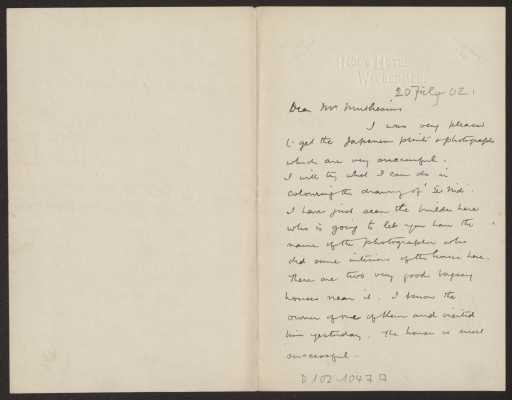 20 July 02.
Dear Mr Muthesius
I was very pleased
to get the Japanese prints & photographs
which are very successful.
I will try what I can do in
colouring the drawing of
I have just seen the builder here
who is going to let you have the
name of the photographer who
did some interiors of the house here.
There are two very good
houses near it. I know the
owner of one of them and visited
him yesterday. The house is most
successful.
D 102-1047